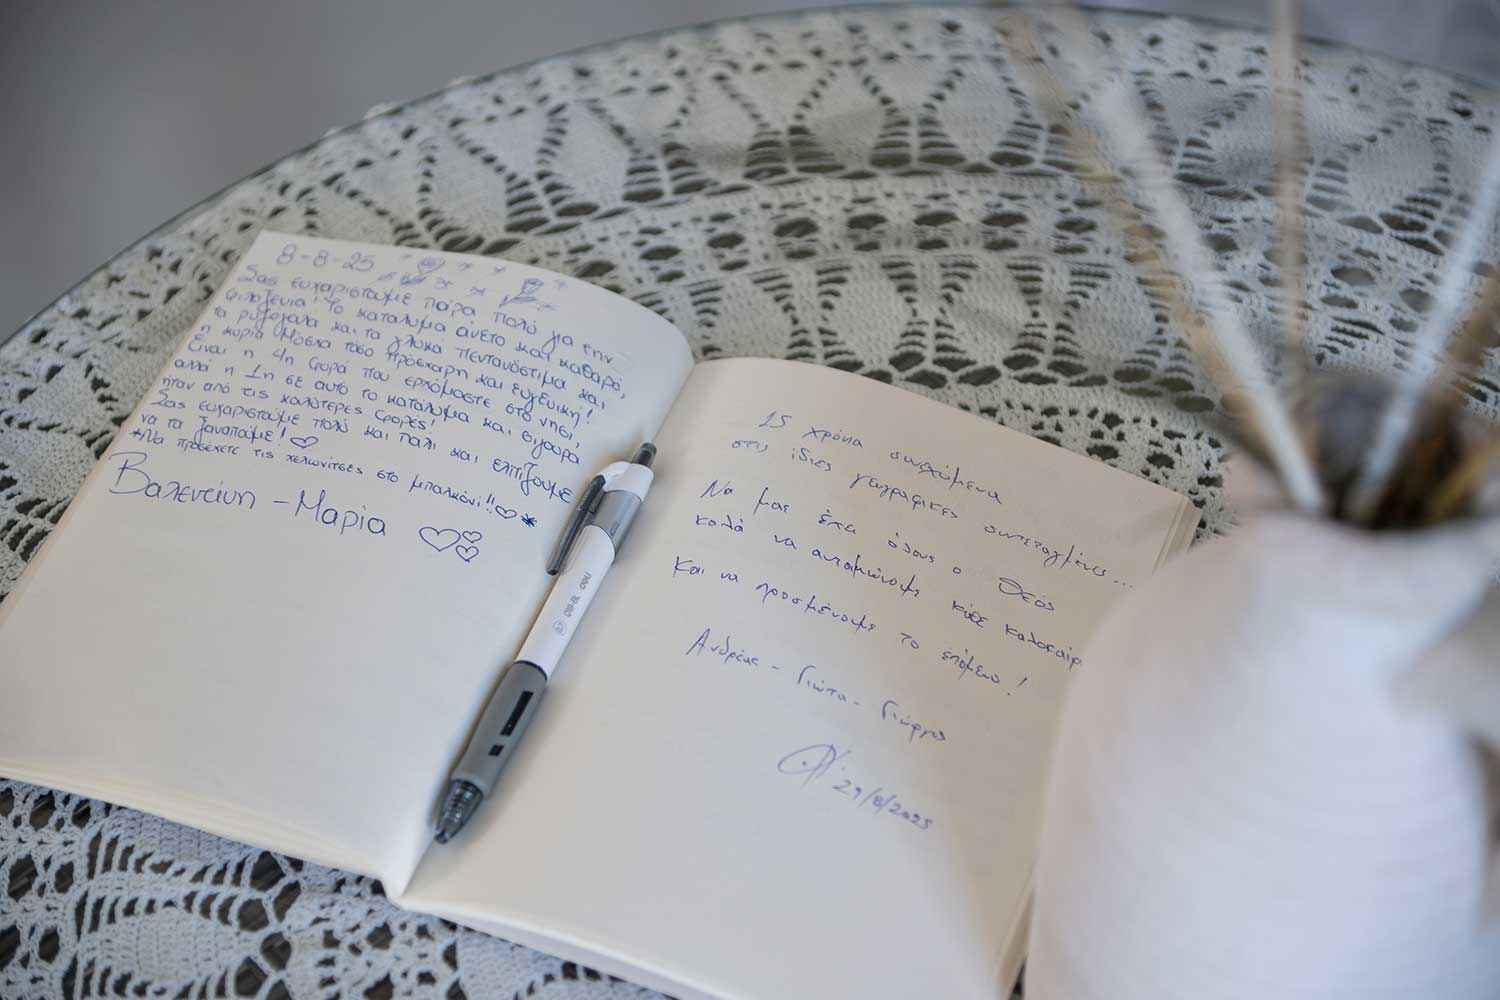 8-8-25
Σας ευχαριστούμε πάρα πολύ για την
φιλοξενία! Το κατάλυμα άνετο και καθαρό,
τα ρυζόγαλα και τα γλυκά πεντανόστιμα και
η κυρία Μόσχα τόσο πρόσχαρη και ευγενική!
Είναι η 4η φορά που ερχόμαστε στο νησί,
αλλά η 1η σε αυτό το κατάλυμα και σίγουρα
ήταν από τις καλύτερες φορές!
Σας ευχαριστούμε πολύ και πάλι και ελπίζουμε
να τα ξαναπούμε! ♡
*Να προσέχετε τις χελωνίτσες στο μπαλκόνι!!♡*
Βαλεντίνη - Μαρία ♡♡♡
15 χρόνια συνεχόμενα
στις ίδιες γεωγραφικές συντεταγμένες...
Να μας έχει όλους ο Θεός
καλά να ανταμώνουμε κάθε καλοκαίρι
και να προσμένουμε το επόμενο!
Ανδρέας - Γιώτα - Γιώργος
29/8/2025